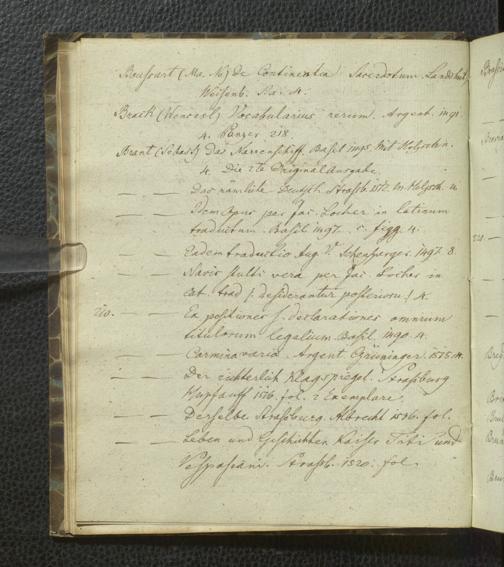 Boussart (Ma. No) De Continentia Sacerdotum. Landshut
Weisenb. s.a. 4.
Brack (Wencesl) Vocabularius rerum. Argent. 1491.
4. Panzer 218.
Brant (Sebast) Das Narrenschiff. Basel 1495. Mit Holzschn.
4. Die 2te Original Ausgabe.
— — Das nämliche Deutsch. Strasb. 1512. m. Holzsch. 4.
— — Idem Opus per Jac. Locher in latinum
traductum. Basil. 1497. c. figg. 4.
— — Eadem traductio Aug. V. Schensperger. 1497. 8.
— — Navis stulti vera per Jac. Locher in
lat. trad (: desiderantur posteriora :) 4.
210. — — Expositiones s. declarationes omnium
titulorum legalium. Basil. 1490. 4.
— — Carmina varia. Argent Grüninger. 1515. 4.
— — Der richterlich Klagspiegel. Strasburg
Hupfauff 1516. fol. 2 Exemplare.
— — Derselbe Strasburg. Albrecht 1536. fol.
— — Leben und Geschichten Kaiser Titi und
Vespasiani. Strasb. 1520. fol.